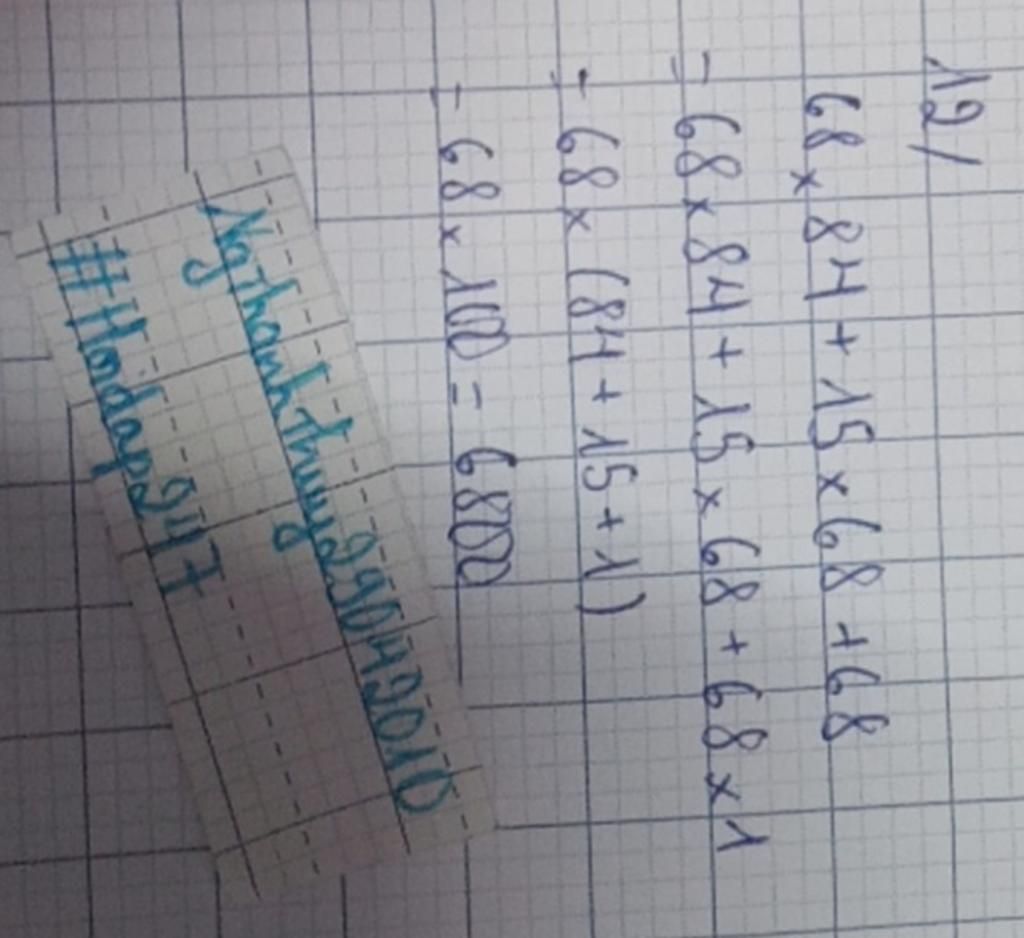 12/
68 × 84 + 15 × 68 + 68
= 68 × 84 + 15 × 68 + 68 × 1
= 68 × (84 + 15 + 1)
= 68 × 100 = 6800
NgthanhThuy2904 2010
#Hoidap247